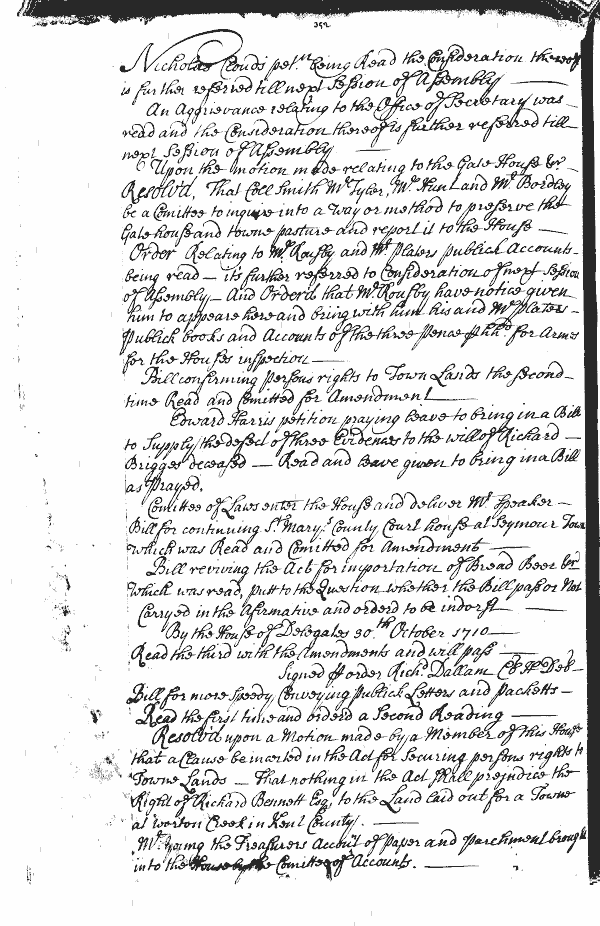 352
Nicholas Clouds pet.n being Read the Consideration thereof
is further referred till next Session of Assembly
An Aggrievance relating to the Office of Secretary was
read and the Consideration thereof is further referred till
next Session of Assembly
Upon the motion made relating to the Gate House &c
Resolvd, That Coll Smith Mr Tyler, Mr Hunt and Mr Bordley
be a Comittee to inquire into a Way or method to preserve the
Gate house and towne pasture and report it to the House
Order Relating to Mr Rousby and Mr Platers publick Accounts
being read — its further referred to Consideration of next Session
of Assembly — And Orderd that Mr Rousby have notice given
him to appeare here and bring with him his and Mr Platers
Publick books and Accounts of the three pence phhd for Arms
for the Houses inspection
Bill confirming persons rights to Town Lands the second
time Read and Comitted for Amendment
Edward Harris petition praying leave to bring in a Bill
to Supply the defect of three Evidences to the will of Richard
Brigges deceased — Read and leave given to bring in a Bill
as prayed.
Comittee of Laws enter the House and deliver Mr Speaker
Bill for continuing St Marys County Court house at Seymour Town
which was Read and Comitted for Amendment
Bill reviving the Act for importation of Bread Beer &c
Which was read, putt to the Question whether the Bill pass or Not
Carryed in the Afirmative and orderd to be indorst
By the House of Delegates 30th October 1710
Read the third with the Amendments and will pass
Signed p order Richd Dallam Cl Ho Del
Bill for more speedy Conveying publick Letters and Packetts
Read the first time and orderd a Second Reading
Resolvd upon a Motion made by a Member of this House
that a Clause be incerted in the Act for Securing persons rights to
Towne Lands — That nothing in the Act Shall prejudice the
Right of Richard Bennett Esq. to the Land laid out for a Towne
at Worton Creek in Kent County.
Mr Young the Treasurers Accout of Paper and parchment brought
into the House by the Comittee of Accounts.